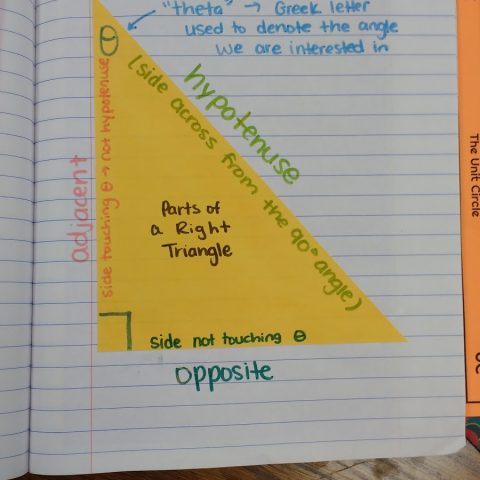 "theta" → Greek letter
used to denote the angle
we are interested in
θ
hypotenuse
(side across from the 90° angle)
adjacent
side touching θ → not hypotenuse
Parts of
a Right
Triangle
side not touching θ
opposite
The Unit Circle